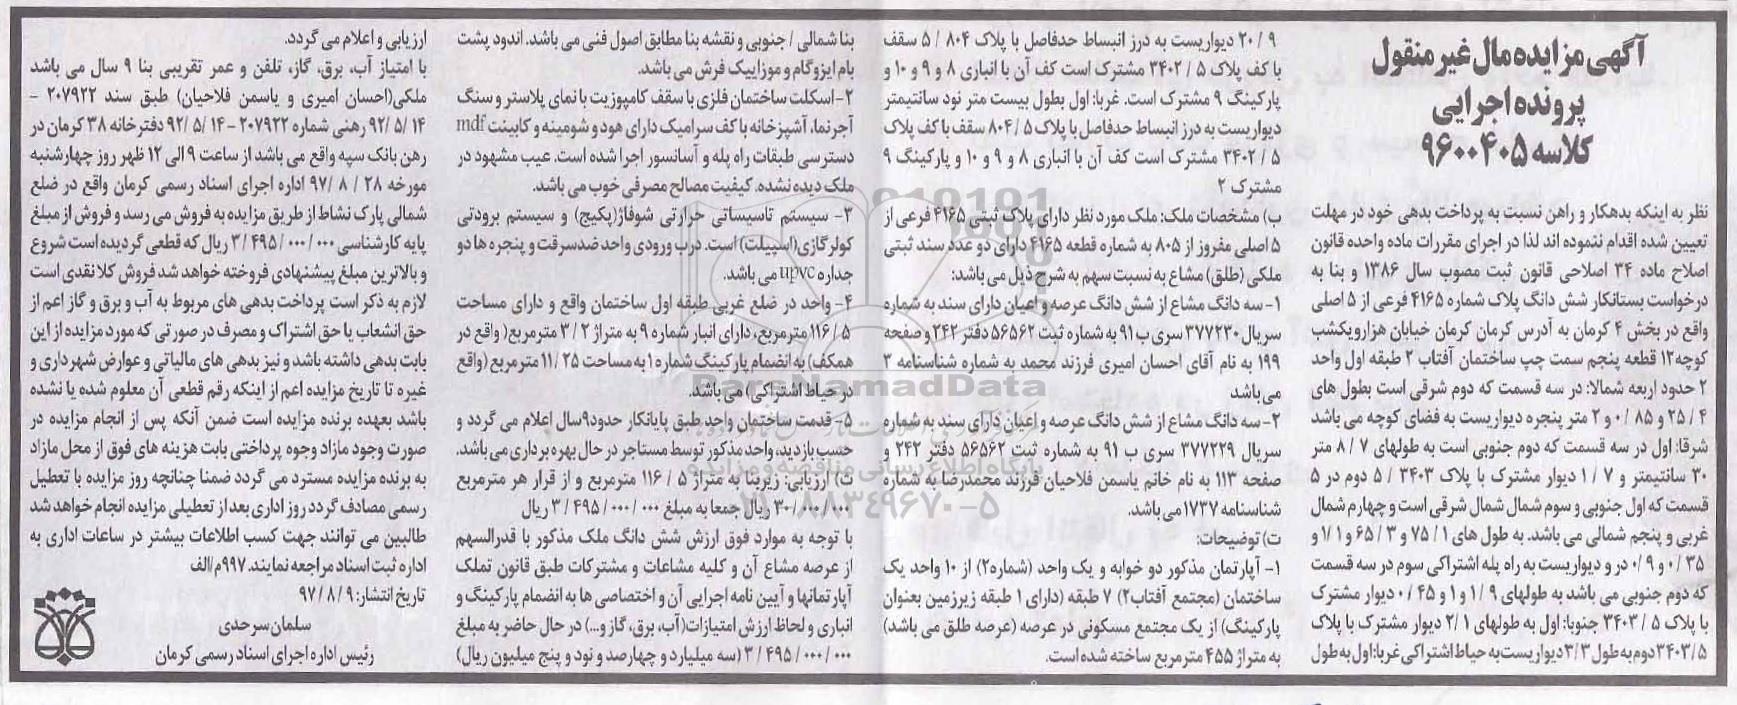 آگهی مزایده مال غیر منقول
پرونده اجرایی
کلاسه ۹۶۰۰۴۰۵
نظر به اینکه بدهکار و راهن نسبت به پرداخت بدهی خود در مهلت
تعیین شده اقدام ننموده اند لذا در اجرای مقررات ماده واحده قانون
اصلاح ماده ۳۴ اصلاحی قانون ثبت مصوب سال ۱۳۸۶ و بنا به
درخواست بستانکار شش دانگ پلاک شماره ۴۱۶۵ فرعی از ۵ اصلی
واقع در بخش ۴ کرمان به آدرس کرمان کرمان خیابان هزارویکشب
کوچه۱۲ قطعه پنجم سمت چپ ساختمان آفتاب ۲ طبقه اول واحد
۲ حدود اربعه شمالا: در سه قسمت که دوم شرقی است بطول های
۴ / ۲۵ و ۸۵ / ۰ و ۲ متر پنجره دیواریست به فضای کوچه می باشد
شرقا: اول در سه قسمت که دوم جنوبی است به طولهای ۷ / ۸ متر
۳۰ سانتیمتر و ۷ / ۱ دیوار مشترک با پلاک ۳۴۰۳ / ۵ دوم در ۵
قسمت که اول جنوبی و سوم شمال شمال شرقی است و چهارم شمال
غربی و پنجم شمالی می باشد. به طول های ۷۵/۱ و ۳ / ۶۵ و ۱/۱ و
۳۵ / ۰ و ۹ / ۰ در و دیواریست به راه پله اشتراکی سوم در سه قسمت
که دوم جنوبی می باشد به طولهای ۹ / ۱ و ۱ و ۴۵ / ۰ دیوار مشترک
با پلاک ۵ / ۳۴۰۳ جنوبا: اول به طولهای ۲/۱ دیوار مشترک با پلاک
۳۴۰۳/۵ دوم به طول ۳/۳ دیواریست به حیاط اشتراکی غربا: اول به طول
۹ / ۲۰ دیواریست به درز انبساط حدفاصل با پلاک ۸۰۴ / ۵ سقف
با کف پلاک ۵ / ۳۴۰۲ مشترک است کف آن با انباری ۸ و ۹ و ۱۰ و
پارکینگ ۹ مشترک است. غربا: اول بطول بیست متر نود سانتیمتر
دیواریست به درز انبساط حدفاصل با پلاک ۵ / ۸۰۴ سقف با کف پلاک
۵ / ۳۴۰۲ مشترک است کف آن با انباری ۸ و ۹ و ۱۰ و پارکینگ ۹
مشترک ۲
ب) مشخصات ملک: ملک مورد نظر دارای پلاک ثبتی ۴۱۶۵ فرعی از
۵ اصلی مفروز از ۸۰۵ به شماره قطعه ۴۱۶۵ دارای دو عدد سند ثبتی
ملکی (طلق) مشاع به نسبت سهم به شرح ذیل می باشد:
۱- سه دانگ مشاع از شش دانگ عرصه و اعیان دارای سند به شماره
سریال ۳۷۷۲۳۰ سری ب ۹۱ به شماره ثبت ۵۶۵۶۲ دفتر ۲۴۲ و صفحه
۱۹۹ به نام آقای احسان امیری فرزند محمد به شماره شناسنامه ۳
می باشد
۲- سه دانگ مشاع از شش دانگ عرصه و اعیان دارای سند به شماره
سریال ۳۷۷۲۲۹ سری ب ۹۱ به شماره ثبت ۵۶۵۶۲ دفتر ۲۴۲ و
صفحه ۱۱۳ به نام خانم یاسمن فلاحیان فرزند محمدرضا به شماره
شناسنامه ۱۷۳۷ می باشد.
ت) توضیحات:
۱- آپارتمان مذکور دو خوابه و یک واحد (شماره۲) از ۱۰ واحد یک
ساختمان (مجتمع آفتاب۲) ۷ طبقه (دارای ۱ طبقه زیرزمین بعنوان
پارکینگ) از یک مجتمع مسکونی در عرصه (عرصه طلق می باشد)
به متراژ ۴۵۵ مترمربع ساخته شده است.
بنا شمالی / جنوبی و نقشه بنا مطابق اصول فنی می باشد. اندود پشت
بام ایزوگام و موزاییک فرش می باشد.
۲- اسکلت ساختمان فلزی با سقف کامپوزیت با نمای پلاستر و سنگ
آجرنما، آشپزخانه با کف سرامیک دارای هود و شومینه و کابینت mdf
دسترسی طبقات راه پله و آسانسور اجرا شده است. عیب مشهود در
ملک دیده نشده. کیفیت مصالح مصرفی خوب می باشد.
۳- سیستم تاسیساتی حرارتی شوفاژ(پکیج) و سیستم برودتی
کولرگازی(اسپیلت) است. درب ورودی واحد ضدسرقت و پنجره ها دو
جداره upvc می باشد.
۴- واحد در ضلع غربی طبقه اول ساختمان واقع و دارای مساحت
۵ / ۱۱۶ مترمربع، دارای انبار شماره ۹ به متراژ ۲ / ۳ مترمربع( واقع در
همکف) به انضمام پارکینگ شماره ۱ به مساحت ۲۵ / ۱۱ مترمربع (واقع
در حیاط اشتراکی) می باشد.
۵- قدمت ساختمان واحد طبق پایانکار حدود۹ سال اعلام می گردد و
حسب بازدید، واحد مذکور توسط مستاجر در حال بهره برداری می باشد.
ث) ارزیابی: زیربنا به متراژ ۵ / ۱۱۶ مترمربع و از قرار هر مترمربع
۳۰/۰۰۰/۰۰۰ ریال جمعا به مبلغ ۰۰۰/ ۰۰۰/ ۴۹۵/ ۳ ریال
با توجه به موارد فوق ارزش شش دانگ ملک مذکور با قدرالسهم
از عرصه مشاع آن و کلیه مشاعات و مشترکات طبق قانون تملک
آپارتمانها و آیین نامه اجرایی آن و اختصاصی ها به انضمام پارکینگ و
انباری و لحاظ ارزش امتیازات(آب، برق، گاز و...) در حال حاضر به مبلغ
۰۰۰/ ۰۰۰/ ۴۹۵/ ۳ (سه میلیارد و چهارصد و نود و پنج میلیون ریال)
ارزیابی و اعلام می گردد.
با امتیاز آب، برق، گاز، تلفن و عمر تقریبی بنا ۹ سال می باشد
ملکی(احسان امیری و یاسمن فلاحیان) طبق سند ۲۰۷۹۲۲ –
۱۴ /۵ /۹۲ رهنی شماره ۲۰۷۹۲۲ – ۱۴ /۵ /۹۲ دفترخانه ۳۸ کرمان در
رهن بانک سپه واقع می باشد از ساعت ۹ الی ۱۲ ظهر روز چهارشنبه
مورخه ۲۸ / ۸ / ۹۷ اداره اجرای اسناد رسمی کرمان واقع در ضلع
شمالی پارک نشاط از طریق مزایده به فروش می رسد و فروش از مبلغ
پایه کارشناسی ۰۰۰/ ۰۰۰/ ۴۹۵/ ۳ ریال که قطعی گردیده است شروع
و بالاترین مبلغ پیشنهادی فروخته خواهد شد فروش کلا نقدی است
لازم به ذکر است پرداخت بدهی های مربوط به آب و برق و گاز اعم از
حق انشعاب یا حق اشتراک و مصرف در صورتی که مورد مزایده از این
بابت بدهی داشته باشد و نیز بدهی های مالیاتی و عوارض شهرداری و
غیره تا تاریخ مزایده اعم از اینکه رقم قطعی آن معلوم شده یا نشده
باشد بعهده برنده مزایده است ضمن آنکه پس از انجام مزایده در
صورت وجود مازاد وجوه پرداختی بابت هزینه های فوق از محل مازاد
به برنده مزایده مسترد می گردد ضمنا چنانچه روز مزایده با تعطیل
رسمی مصادف گردد روز اداری بعد از تعطیلی مزایده انجام خواهد شد
طالبین می توانند جهت کسب اطلاعات بیشتر در ساعات اداری به
اداره ثبت اسناد مراجعه نمایند. ۹۹۷م/الف
تاریخ انتشار: ۹ / ۸ / ۹۷
سلمان سرحدی
رئیس اداره اجرای اسناد رسمی کرمان
ParsNamadData
پایگاه اطلاع رسانی مناقصه و مزایده
۰۲۱-۸۸۳۴۹۶۷۰-۵